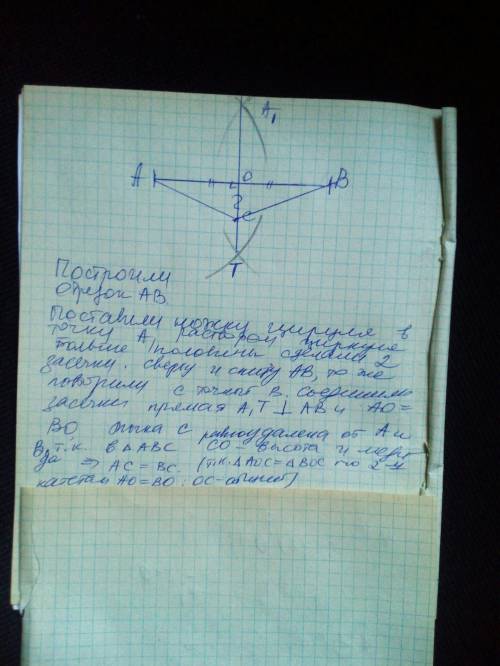 A₁
A
O
B
2
C
T
Построили
отрезок AB.
Поставили ножку циркуля в
точку A, раствором циркуля
больше половины сделали 2
засечки. сверху и снизу AB, то же
повторили с точкой B. Соединили
засечки прямая A₁T ⊥ AB и AO =
BO точка C равноудалена от A и
B, т.к. в △ABC CO высота и меди
да ⇒ AC = BC. (т.к. △AOC = △BOC по 2-м
катетам AO = BO; OC-общий)